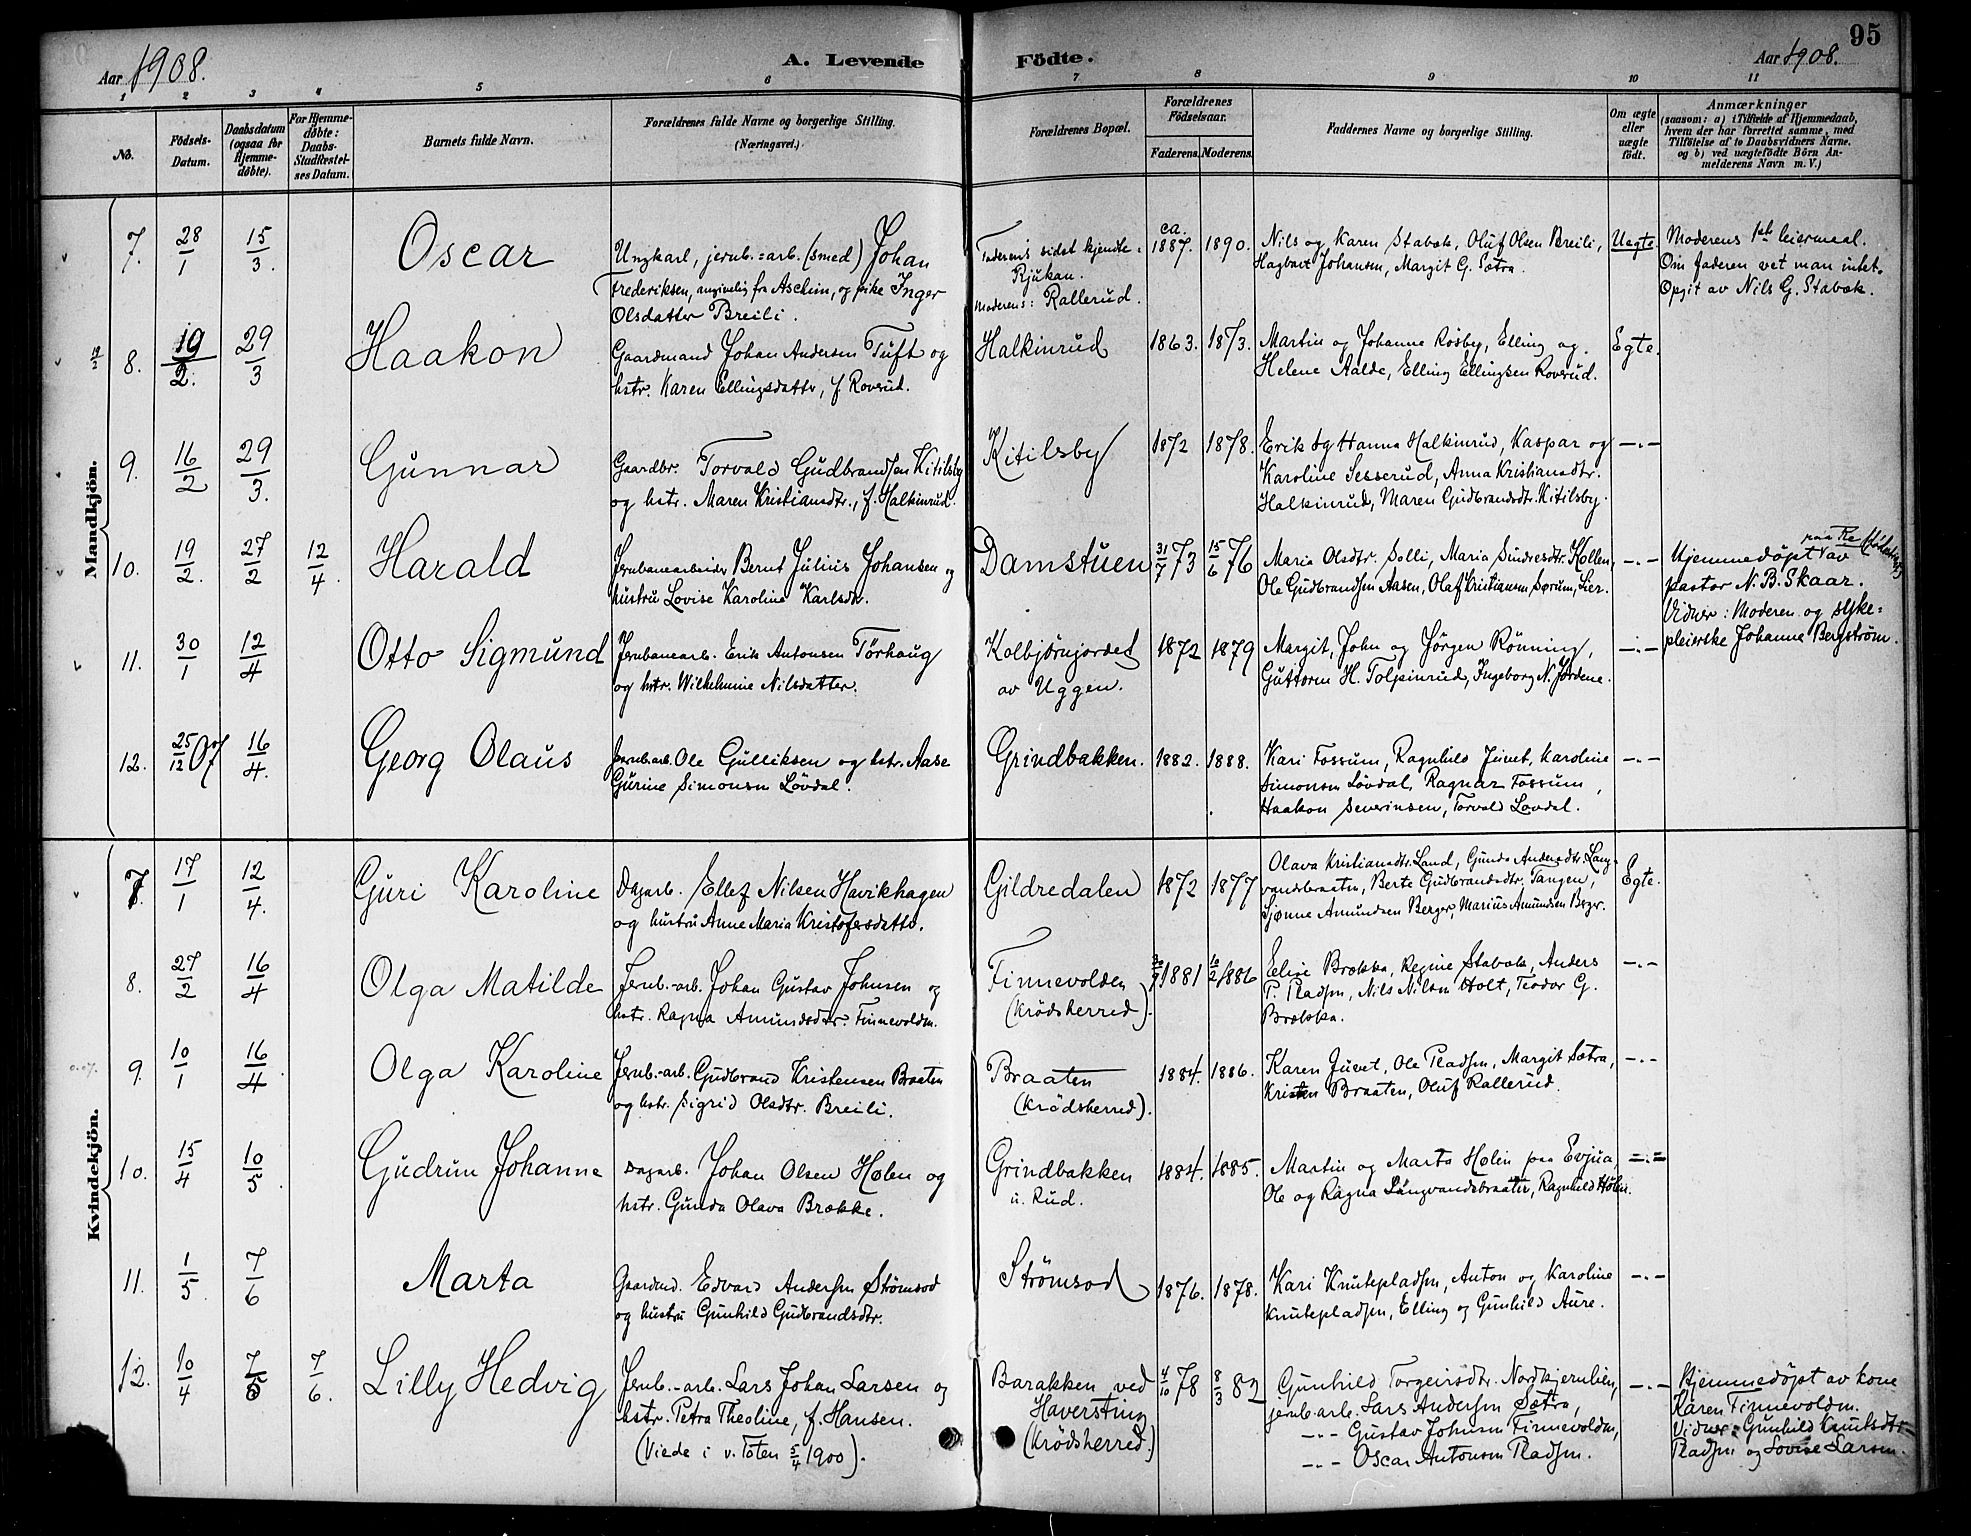 Aar 1908.
A. Levende Födte.
Aar 1908.
95
1 2 3 4 5 6 7 8 9 10 11
No.
Födsels-Datum.
Daabsdatum (ogsaa for Hjemme-döbte).
For Hjemme-döbte: Daabs-Stadfæstel-ses Datum.
Barnets fulde Navn.
Forældrenes fulde Navne og borgerlige Stilling.
(Næringsvei.)
Forældrenes Bopæl.
Forældrenes Födselsaar.
Faderens. Moderens.
Faddernes Navne og borgerlige Stilling.
Om ægte eller uægte födt.
Anmærkninger
(saasom: a) i Tilfælde af Hjemmedaab,
hvem der har forrettet samme, med
Tilföielse af to Daabsvidners Navne,
og b) ved uægtefödte Börn An-
melderens Navn m. V.)
Mandkjön.
7. 28/1 15/3. Oscar
Ungkarl, jernb.=arb. (smed) Johan
Frederiksen, angivelig fra Aschim, og pike Inger
Olsdatter Breili.
Faderens sidst kjendte:
Rjukan.
Moderens: Rallerud.
ca. 1887. 1890.
Nils og Karen Stabæk, Oluf Olsen Breili,
Hagbart Johansen, Margit G. Sætra.
Uegte.
Moderens 1ste leiermaal.
Om faderen vet man intet.
Opgit av Nils G. Stabæk.
8. 19/2. 29/3 Haakon
Gaardmand Johan Andersen Tuft og
hstr. Karen Ellingsdatter, f. Roverud.
Halkinrud
1863. 1873.
Martin og Johanne Rosby, Elling og
Helene Aalde, Elling Ellingsen Roverud.
Egte.
9. 16/2 29/3. Gunnar
Gaardbr. Torvald Gudbrandsen Kitilsby
og hstr. Maren Kristiansdtr., f. Halkinrud.
Kitilsby
1872 1878.
Erik og Hanna Halkinrud, Kaspar og
Karoline Sesserud, Anna Kristiansdtr.
Halkinrud, Maren Gudbrandsdtr. Kitilsby.
-"-
10. 19/2. 27/2 12/4. Harald
Jernbanearbeider Bernt Julius Johansen og
hustru Lovise Karoline Karlsdtr.
Damstuen
31/7 73 15/6 76
Maria Olsdtr. Solli, Maria Sindresdtr. Kollen,
Ole Gudbrandsen Aasen, Olaf Kristiansen Sørum, Lier.
-"-
Hjemmedöpt av
pastor N. B. Skaar.
Vidner: Moderen og syke=
pleierske Johanne Bergström.
11. 30/1 12/4 Otto Sigmund
Jernbanearb. Erik Antonsen Törhaug
og hstr. Wilhelmine Nilsdatter.
Kolbjørnjordet
av Uggen.
1872 1879
Margit, John og Jörgen Rönning,
Guttorm H. Tolpinrud, Ingeborg N. Jordene.
-"-
12. 25/12 07 16/4. Georg Olaus
Jernb.arb. Ole Gulliksen og hstr. Aase
Gurine Simonsen Lövdal.
Grindbakken.
1882. 1888.
Kari Fossum, Ragnhild Juvet, Karoline
Simonsen Lövdal, Ragnar Fossum,
Haakon Severinsen, Torvald Lövdal.
-"-
Kvindekjön.
7. 17/1 12/4. Guri Karoline
Dagarb. Ellef Nilsen Havikhagen
og hustru Anne Maria Kristofersdatter.
Gildredalen
1872 1877
Olava Kristiansdtr. Land, Gunda Andersdtr. Lang-
vandsbraaten, Berte Gudbrandsdtr. Tangen,
Sjønne Amundsen Berger, Marius Amundsen Berger.
Egte.
8. 27/2 16/4 Olga Matilde
Jernb.-arb. Johan Gustav Johnsen og
hstr. Ragna Amundsdtr. Finnevolden.
Finnevolden
(Krödsherred).
1881 1886
Eelise Brække, Regine Stabæk, Anders
P. Pladsen, Nils Nilsen Holt, Teodor G.
Brække.
-"-
9. 10/1 16/4 Olga Karoline
Jernb.-arb. Gudbrand Kristensen Braaten
og hstr. Sigrid Olsdtr. Breili.
Braaten
(Krödsherred).
1884. 1886.
Karen Juvet, Ole Pladsen, Margit Sætra,
Kristen Braaten, Oluf Rallerud.
-"-
10. 15/4 10/5. Gudrun Johanne
Dagarb. Johan Olsen Hølen og
hstr. Gunda Olava Brække.
Grindbakken
u. Rud.
1884. 1885.
Martin og Marta Hølen paa Evjua,
Ole og Ragna Langvandsbraaten, Ragnhild Hølen.
="=
11. 1/5. 7/6 Marta
Gaardmd. Edvard Andersen Strömsod
og hustru Gunhild Gudbrandsdtr.
Strömsod
1876. 1878.
Kari Knutepladsen, Anton og Karoline
Knutepladsen, Elling og Gunhild Aure.
-"-
12. 10/4 7/6 7/6. Lilly Hedvig
Jernb.-arb. Lars Johan Larsen og
hstr. Petra Theoline, f. Hansen.
(Viede i v. Toten 5/4 1900).
Barakken ved
Haversting
(Krödsherred.)
4/10 78 8/3 82
Gunhild Torgeirsdtr. Nordkjernlien,
jernb.arb. Lars Andersen Sætra,
-"- Gustav Johnsen Finnevolden,
-"- Oscar Antonsen Pladsen.
-"-
Hjemmedöpt av kone
Karen Finnevolden.
Vidner: Gunhild Knutsdtr.
Pladsen og Lovise Larsen.